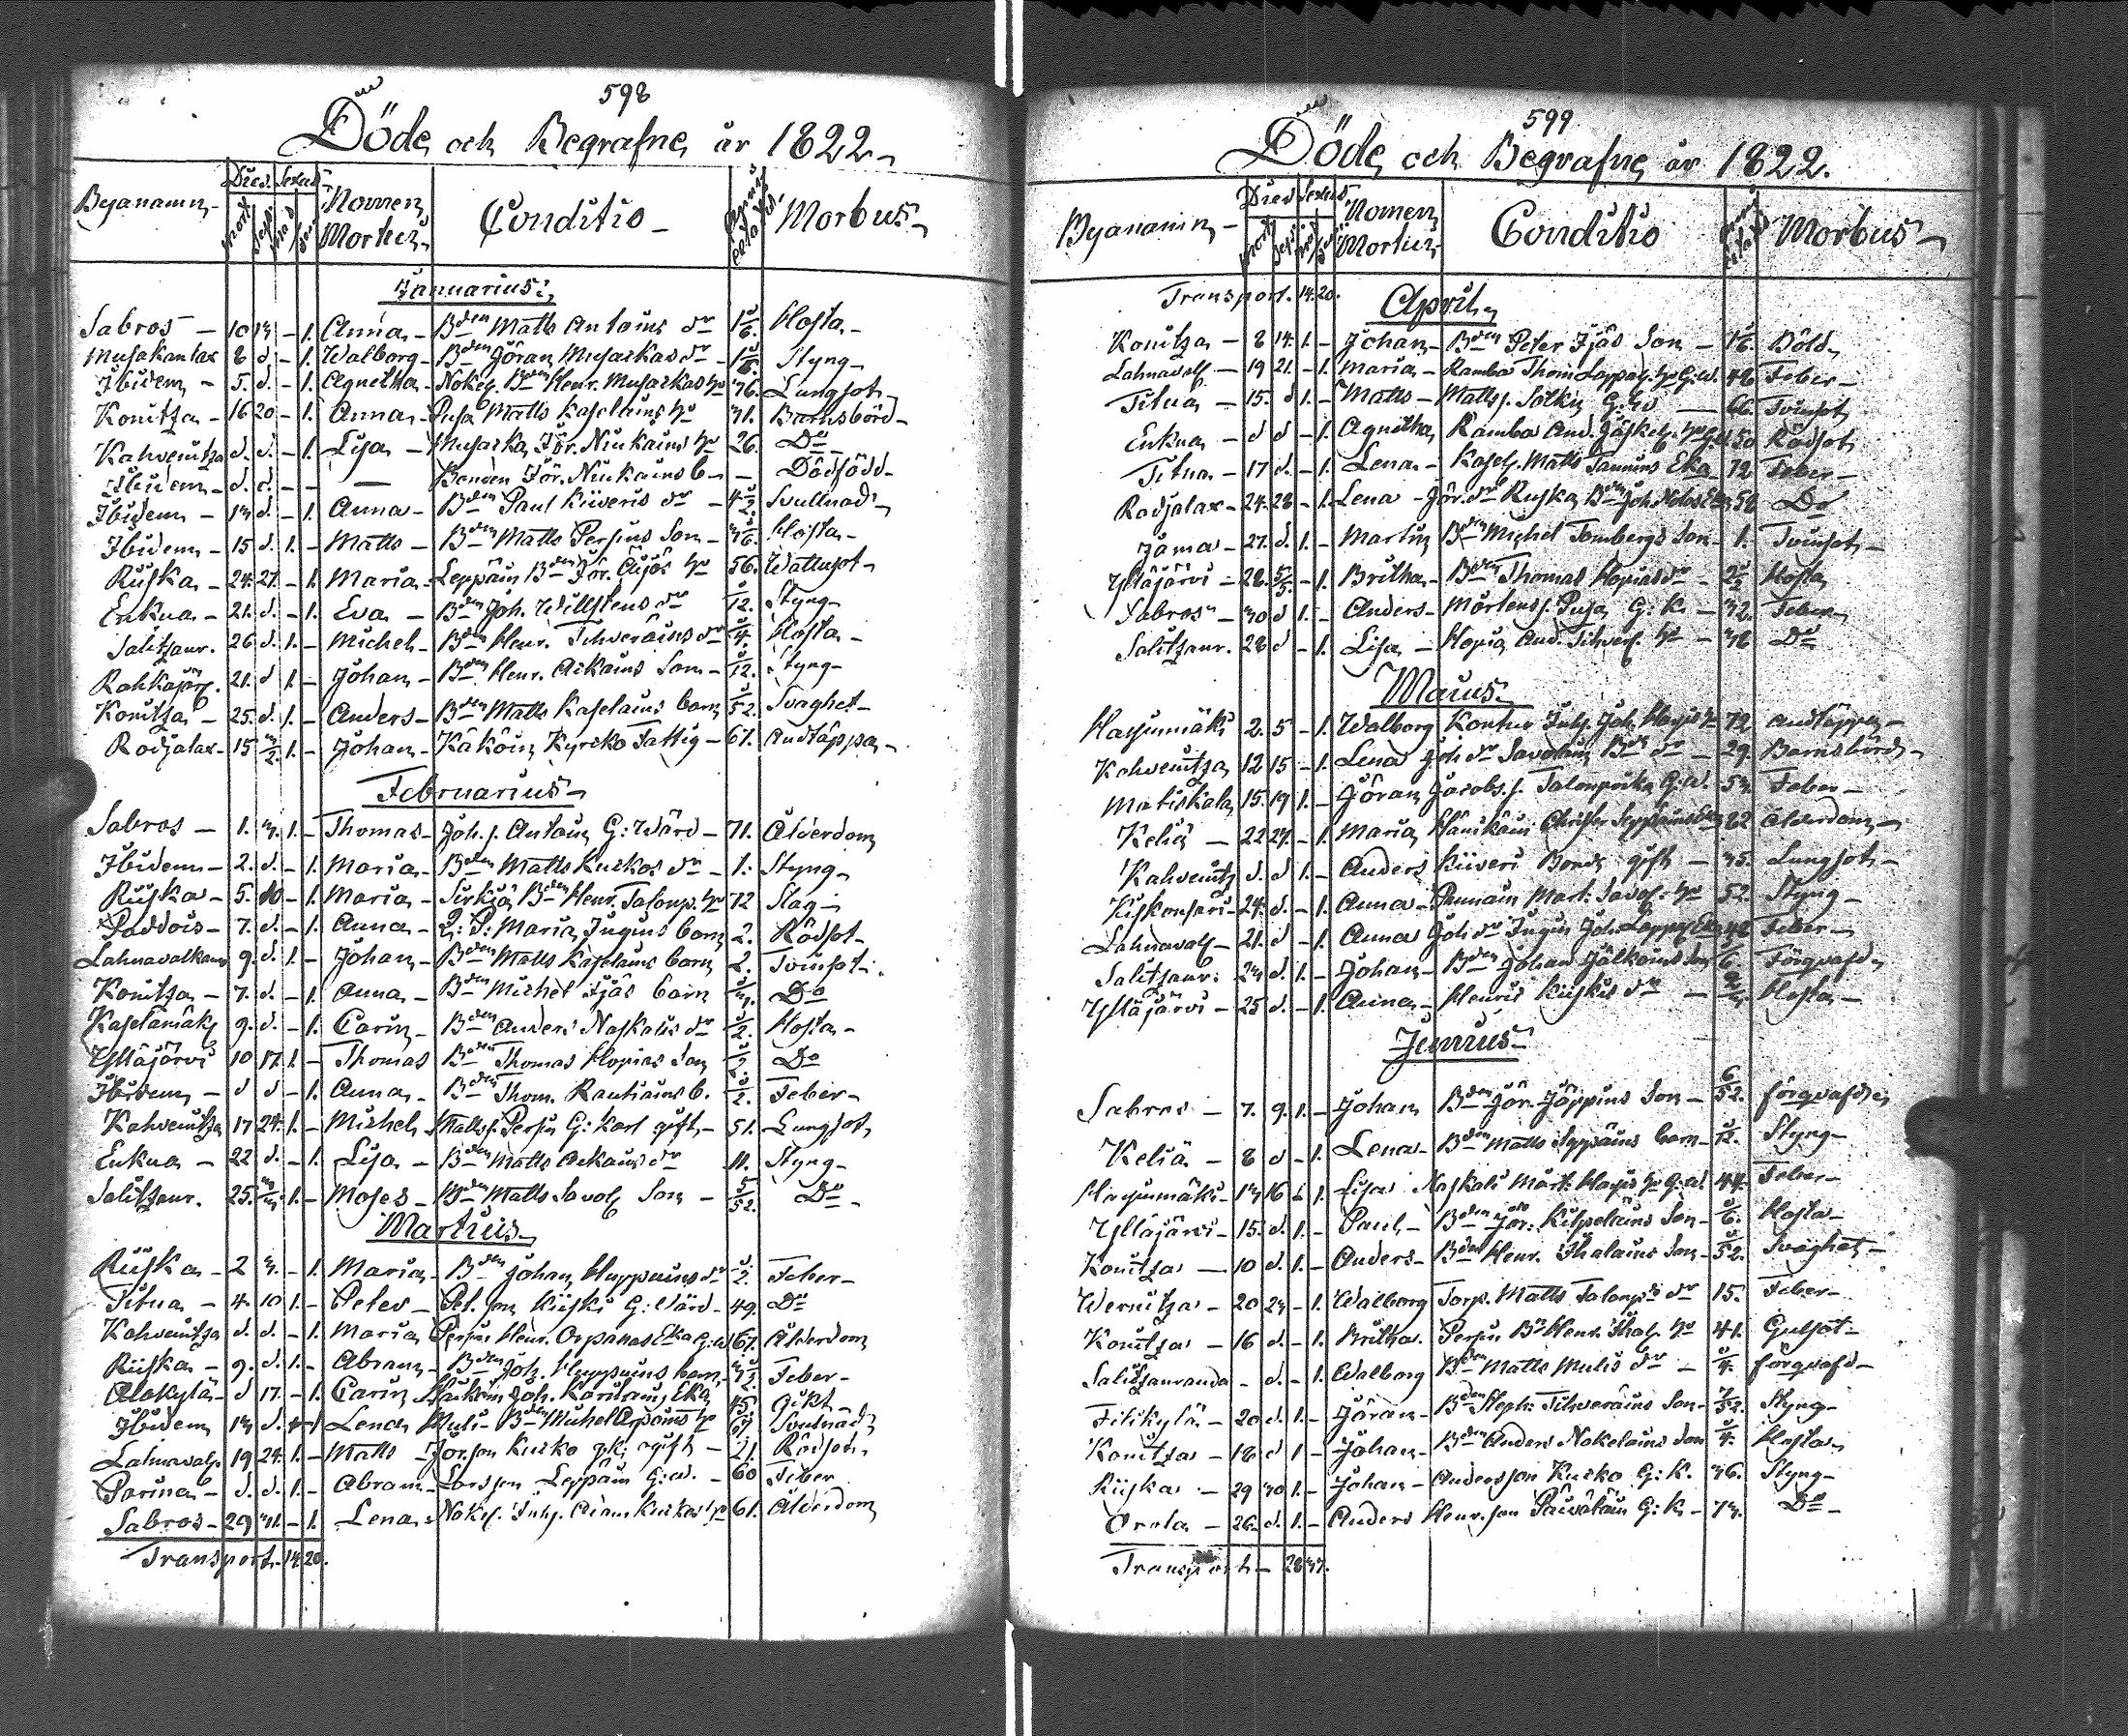 598
Döde och Begrafne år 1822
Byanamn Dies Sexus Nomen Mortui Conditio Morbus
mort. sep.
Januarius
Sabros - 10 - 1. Anna - Bden Matts Antains dr Hosta
Musakanlax 8 d. - 1. Walborg - Bden Jöran Musackas dr Styng
Ibidem - 5. d. - 1. Agnetha - Bden Henr. Musackas hu 76. Lungsot
Konitza - 16 20 - 1. Anna - Pusa Matts Kaselains hu 31. Barnsbörd
Kahvenitza d. d. - 1. Lisa - Musacka Jör. Niukains hu 26. Do
Ibidem - d. d. - - Bonden Jör. Niukains b. - Dödfödd
Ibidem - 13 d. - 1. Anna - Bden Paul Kiiveris dr Svullnad
Ibidem - 15 d. 1. - Matts - Bden Matts Persius Son Hosta
Riiska - 24. 27. - 1. Maria - Leppäin Bden Jör. hu 56. Wattusot
Enkua - 21. d. - 1. Eva - Bden Joh. Willstens dr Styng
Salitzaur. 26 d. 1. - Michel - Bden Henr. Tihveräins dr Hosta
21. d 1. - Johan - Bden Henr. Aikains Son Styng
Konitza - 25. d. 1. - Anders - Bden Matts Kaselains barn Svaghet
Rodjalax - 15 1. - Johan - Käköin Kyrcko Fattig - 67. Andtäppa
Februarius
Sabros - 1. 3. 1. - Thomas - Joh. s. Antain G: Wärd - 71. Ålderdom
Ibidem - 2. d. - 1. Maria - Bden Matts Kuckos dr - 1. Styng
Riiska - 5. 10 - 1. Maria - Sirkiä Bden Henr. Talonp. hu 72 Slag
Paddois - 7. d. - 1. Anna - Q: P: Maria Jugins barn 2. Rödsot
Lahnavalkama 9. d. 1. - Johan - Bden Matts Kaselains barn 2. Tvinsot
Konitza - 7. d. - 1. Anna - Bden Michel Ijäs barn Do
Kaselamäki 9. d. - 1. Carin - Bden Anders Naskalis dr Hosta
Ylläjärvi 10 17. 1. - Thomas Bden Thomas Hopias Son Do
Ibidem - d d - 1. Anna - Bden Thom. Rautiains b. Feber
Kahvenitza 17 24. 1. - Michel Matts s. Persin G: karl gift - 51. Lungsot
Enkua - 22 d. - 1. Lisa - Bden Matts Aickains dr 11. Styng
Salitzaur. 25. - 1. - Moses - Bden Matts Savol. Son 5/52. Do
Martius
Riiska - 2 3. - 1. Maria - Bden Johan Huppains dr Feber
Titua - 4. 10 1. - Peter - Pet. son Kiiski G: Wärd - 49. Do
Kahvenitza d. d. - 1. Maria Persin Henr. Orpanas Eka 67. Ålderdom
Riiska - 9. d. 1. - Abram - Bden Joh. Huppains barn Feber
Alakylä - d 17. - 1. Carin Joh. Karilains Eka 45. Gikt
Ibidem 13 d. - 1 Lena Muli Bden Michel hu 67. Svullnad
Lahnavalk. 19 24. 1. - Matts Jör. son Kucko ogift - 21. Rödsot
Parina - d. d. 1. - Abram - Larsson Leppäin G: w. - 60 Feber
Sabros - 29 31. - 1. Lena - Inh. Kuckos hu 61. Ålderdom
Transport. 14. 20.
599
Döde och Begrafne år 1822.
Byanamn Dies Sexus Nomen Mortui Conditio Morbus
Transport. 14. 20.
April
Konitza - 8 14. 1. - Johan - Bden Peter Ijäs Son Böld
Lahnavalk - 19 21. - 1. Maria - Ramba Thom 48 Feber
Titua - 15. d 1. - Matts - Matts s. G: w 66. Tvinsot
Enkua - d d - 1. Agnetha Ramba And. 50 Rödsot
Titua - 17 d. - 1. Lena - Kasel. Matts Tannins Eka 72 Feber
Rodjalax - 24. 28 - 1. Lena - Jör. dr Ruska Bden Joh. 58 Do
Jama - 27. d. 1. - Martin Bden Michel Tombergs Son - 1. Tvinsot
Ylläjärvi - 28. 5/5. - 1. Britha - Bden Thomas Hopias dr Hosta
Sabros - 30 d 1. - Anders - Mårtens s. Pusa G: K. - 32. Feber
Salitzaur. 28 d - 1. Lisa - Hopia And. Tihver. hu - 38 Do
Maius
Harjunmäki 2. 5 - 1. Walborg Kontur Inh. Joh. hu 72 Andtäppa
Kahvenitza 12 15 - 1. Lena Joh dr Savolain dr 29. Barnsbörd
Matiskala 15. 19 1. - Jöran Jacobs. s. Talonpoika G: w. 53. Feber
Keliä - 22 27. - 1. Maria Hänikäin Christer 82 Ålderdom
Kahvenitz d. d 1. - Anders Kiiveri Bonde gift - 35. Lungsot
24. d. - 1. Anna - Pennain Mart: Savol. hu 52. Styng
Lahnavalk - 21. d - 1. Anna Joh dr Jugin Joh. Eka 48 Feber
Salitzaur: 23 d. 1. - Johan - Bden Johan Son förqvafd
Ylläjärvi - 25 d. - 1. Anna - Henric Kiiskis dr Hosta
Junius
Sabros - 7. 9. 1. - Johan Bden Jör. Jäppins Son 6/52. förqvafd
Keliä - 8 d - 1. Lena - Bden Matts Seppäins barn Styng
Harjunmäki - 13 16 - 1. Lisa Naskali Mårt. hu 44. Feber
Ylläjärvi - 15. d. 1. - Paul - Bden Jör. Kilpeläins Son Hosta
Konitza - 10 d. 1. - Anders - Bden Henr. Ihalains Son Svaghet
Wernitza - 20 23 - 1. Walborg Torp. Matts Talonp. dr 15. Feber
Konitza - 16 d. - 1. Britha. Persin Bn Henr. Ihal. hu 41. Gulsot
Salitzauranda - d. - 1. Walborg Bden Matts Mulis dr förqvafd
Titikylä - 20 d. 1. - Jöran - Bden Steph: Tihveräins Son Styng
Konitza - 18 d 1 - Johan - Bden Anders Nokelains Son Hosta
Riiska - 29 30 1. - Johan - Andersson Kucko G: K. 36. Styng
Orola - 26. d. 1. - Anders Henr. son G: K. - 73. Do
Transport - 28 37.